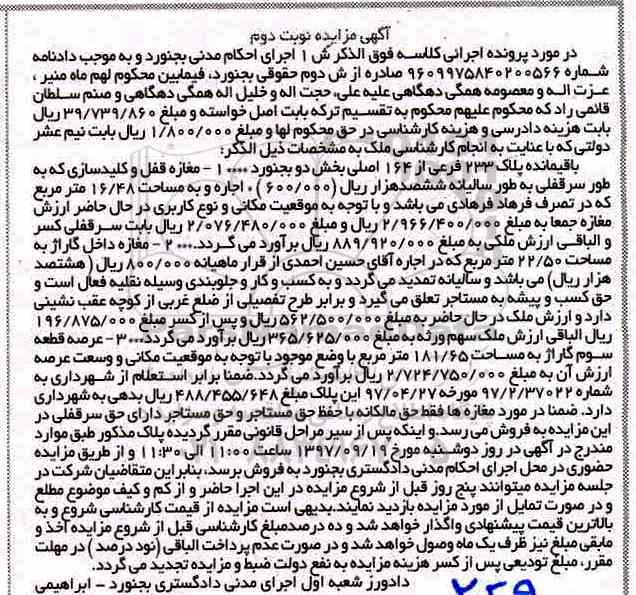 آگهی مزایده نوبت دوم
در مورد پرونده اجرائی کلاسه فوق الذکر ش ۱ اجرای احکام مدنی بجنورد و به موجب دادنامه
شماره ۹۶۰۹۹۷۵۸۴۰۲۰۰۵۶۶ صادره از ش دوم حقوقی بجنورد، فیمابین محکوم لهم ماه منیر ،
عزت اله و معصومه همگی دهگاهی علیه علی، حجت اله و خلیل اله همگی دهگاهی و صنم سلطان
قائمی راد که محکوم علیهم محکوم به تقسیم ترکه بابت اصل خواسته و مبلغ ۳۹/۷۳۹/۸۶۰ ریال
بابت هزینه دادرسی و هزینه کارشناسی در حق محکوم لها و مبلغ ۱/۸۰۰/۰۰۰ ریال بابت نیم عشر
دولتی که با عنایت به انجام کارشناسی ملک به مشخصات ذیل الذکر:
باقیمانده پلاک ۲۳۳ فرعی از ۱۶۴ اصلی بخش دو بجنورد .... ۱ - مغازه قفل و کلیدسازی که به
طور سرقفلی به طور سالیانه ششصدهزار ریال (۶۰۰/۰۰۰) ۰ اجاره و به مساحت ۱۶/۴۸ متر مربع
که در تصرف فرهاد فرهادی می باشد و با توجه به موقعیت مکانی و نوع کاربری در حال حاضر ارزش
مغازه جمعا به مبلغ ۲/۹۶۶/۴۰۰/۰۰۰ ریال و مبلغ ۲/۰۷۶/۴۸۰/۰۰۰ ریال بابت سرقفلی کسر
و الباقی ارزش ملکی به مبلغ ۸۸۹/۹۲۰/۰۰۰ ریال برآورد می گردد.... ۲ - مغازه داخل گاراژ به
مساحت ۲۲/۵۰ متر مربع که در اجاره آقای حسین احمدی از قرار ماهیانه ۸۰۰/۰۰۰ ریال (هشتصد
هزار ریال) می باشد و سالیانه تمدید می گردد و به کسب و کار و جلوبندی وسیله نقلیه فعال است و
حق کسب و پیشه به مستاجر تعلق می گیرد و برابر طرح تفصیلی از ضلع غربی از کوچه عقب نشینی
دارد و ارزش ملک در حال حاضر به مبلغ ۵۶۲/۵۰۰/۰۰۰ ریال و پس از کسر مبلغ ۱۹۶/۸۷۵/۰۰۰
ریال الباقی ارزش ملک سهم ورثه به مبلغ ۳۶۵/۶۲۵/۰۰۰ ریال برآورد می گردد....۳ - عرصه قطعه
سوم گاراژ به مساحت ۱۸۱/۶۵ متر مربع با وضع موجود با توجه به موقعیت مکانی و وسعت عرصه
ارزش آن به مبلغ ۲/۷۲۴/۷۵۰/۰۰۰ ریال برآورد می گردد.ضمنا برابر استعلام از شهرداری به
شماره ۹۷/۲/۳۷۰۲۲ مورخه ۹۷/۰۴/۲۷ این پلاک مبلغ ۴۸۸/۴۵۵/۶۴۸ ریال بدهی به شهرداری
دارد. ضمنا در مورد مغازه ها فقط حق مالکانه با حفظ حق مستاجر و حق مستاجر دارای حق سرقفلی در
این مزایده به فروش می رسد.و اینکه پس از سیر مراحل قانونی مقرر گردیده پلاک مذکور طبق موارد
مندرج در آگهی در روز دوشنبه مورخ ۱۳۹۷/۰۹/۱۹ ساعت ۱۱:۰۰ الی ۱۱:۳۰ و از طریق مزایده
حضوری در محل اجرای احکام مدنی دادگستری بجنورد به فروش برسد، بنابراین متقاضیان شرکت در
جلسه مزایده میتوانند پنج روز قبل از شروع مزایده در این اجرا حاضر و از کم و کیف موضوع مطلع
و در صورت تمایل از مورد مزایده بازدید نمایند.بدیهی است مزایده از قیمت کارشناسی شروع و به
بالاترین قیمت پیشنهادی واگذار خواهد شد و ده درصدمبلغ کارشناسی قبل از شروع مزایده اخذ و
مابقی مبلغ نیز ظرف یک ماه وصول خواهد شد و در صورت عدم پرداخت الباقی (نود درصد) در مهلت
مقرر، مبلغ تودیعی پس از کسر هزینه مزایده به نفع دولت ضبط و مزایده تجدید می گردد.
دادورز شعبه اول اجرای مدنی دادگستری بجنورد - ابراهیمی